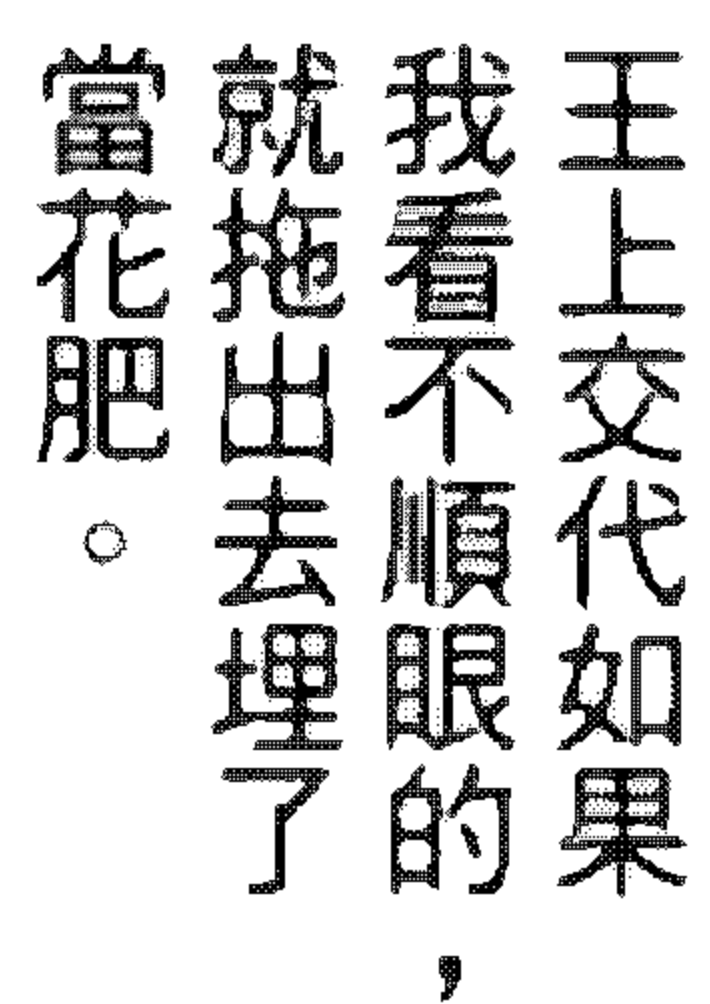 王上交代如果
我看不順眼的，
就拖出去埋了
當花肥。